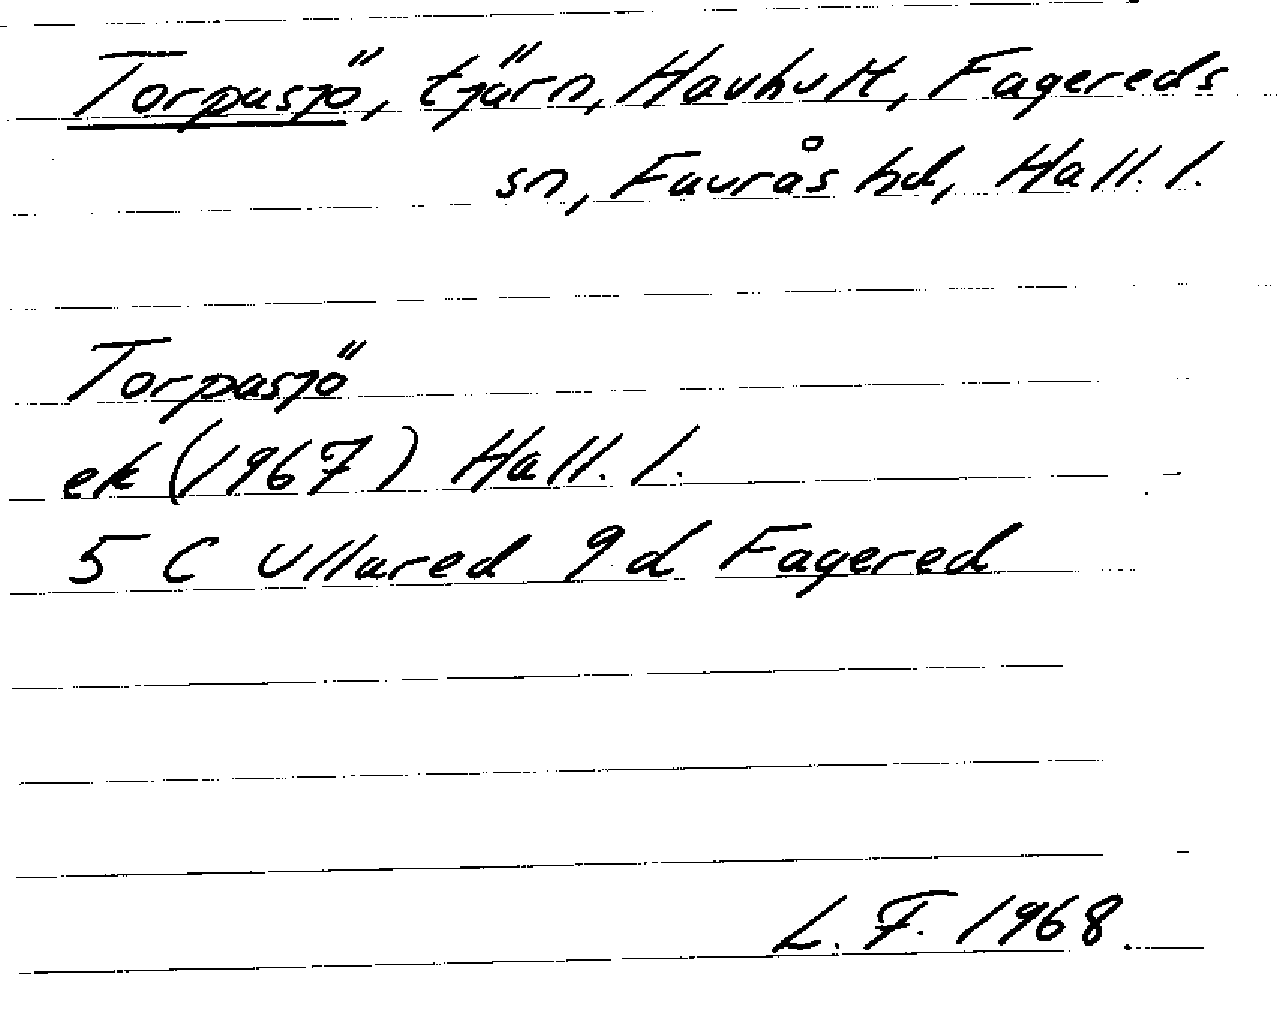 Torpasjö, tjärn, Hauhult, Fagereds
sn, Faurås hd, Hall. l.
Torpasjö
ek (1967) Hall. l.
5 C Ullared 9 d Fagered
L. F. 1968.